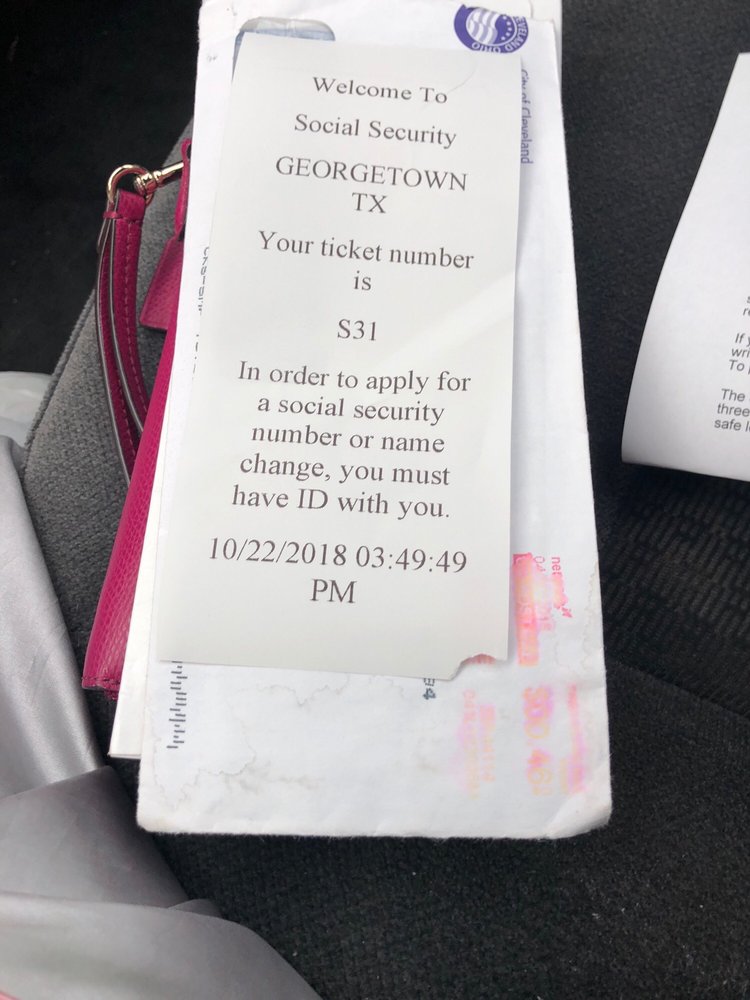 Welcome To
Social Security
GEORGETOWN
TX
Your ticket number
is
S31
In order to apply for
a social security
number or name
change, you must
have ID with you.
10/22/2018 03:49:49
PM
City of Cleveland
If
To
The
three
safe